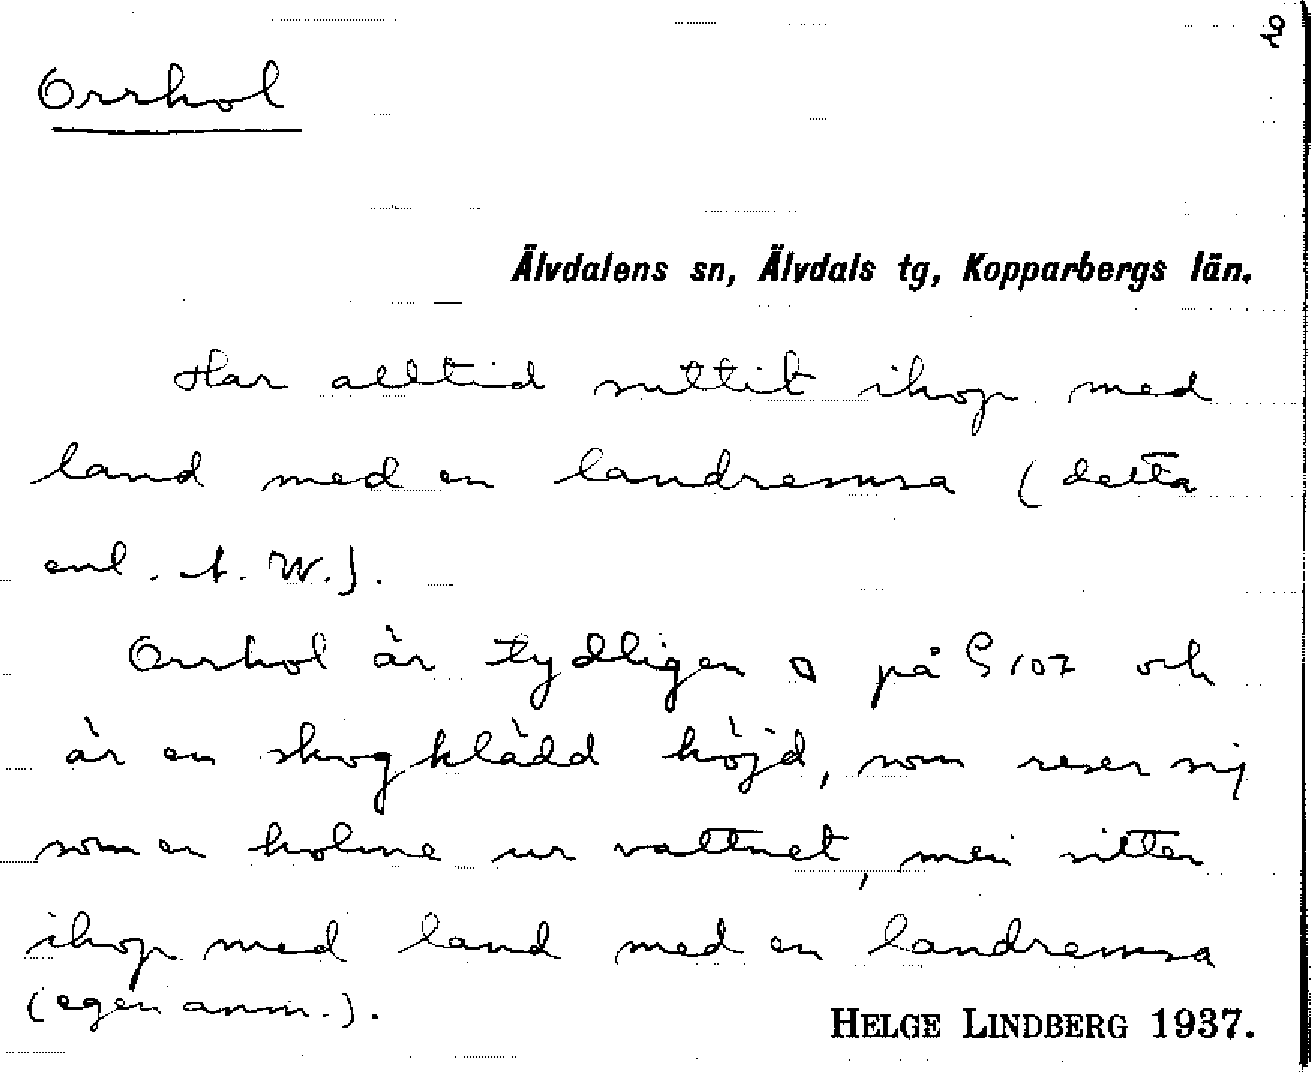 Orrhol
Älvdalens sn, Älvdals tg, Kopparbergs län.
Har alltid suttit ihop med
land med en landremsa (detta
enl. A. W.).
Orrhol är tydligen på G 107 och
är en skogklädd höjd, som reser sig
som en holme ur vattnet, men sitter
ihop med land med en landremsa
(egen anm.).
HELGE LINDBERG 1937.